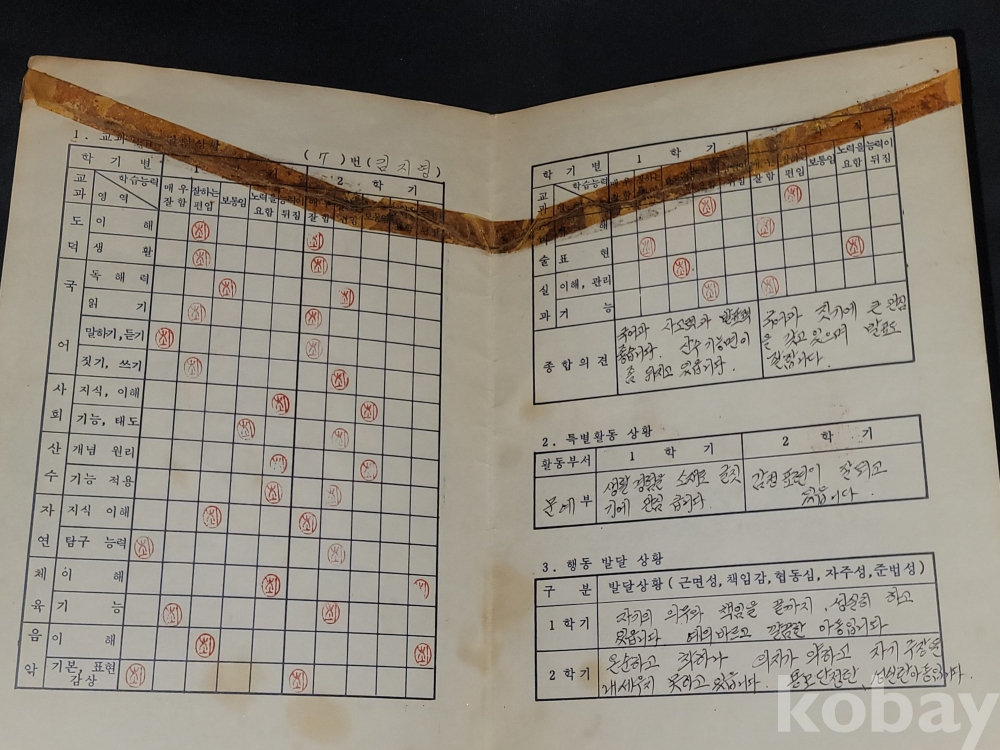 1. 교과
( 7 ) 번 ( 김지형 )
학 기 별 1 2 학 기
교과 학습능력
영 역
매 우 잘 함 잘하는 편임 보통임 노력을 요함 능력이 뒤짐
도덕
이 해
생 활
국어
독 해 력
읽 기
말하기,듣기
짓기, 쓰기
사회
지식, 이해
기능, 태도
산수
개념 원리
기능 적용
자연
지식 이해
탐구 능력
체육
이 해
기 능
음악
이 해
기본, 표현
감상
학 기 별 1 학 기
교과 학습능력
보통임 노력을 요함 능력이 뒤짐
해
술 표 현
실과
이해, 관리
기 능
종 합 의 견
국어과 사고력과 발표력
좋습니다. 산수 기능면이
좀 뒤지고 있습니다.
국어과 짓기에 큰 관심
을 갖고 있으며 발표도
잘합니다.
2. 특별활동 상황
활동부서 1 학 기 2 학 기
문예부
생활 경험을 소재로 글짓
기에 관심 큽니다.
감전 표현이 잘 되고
있읍니다.
3. 행동 발달 상황
구 분 발달상황 ( 근면성, 책임감, 협동심, 자주성, 준법성 )
1 학기
자기의 의무와 책임을 끝까지 성실히 하고
있읍니다 예의 바르고 깔끔한 아동입니다
2 학기
온순하고 착하나 의지가 약하고 자기 주장을
내세우지 못하고 있습니다. 용모단정한, 성실한 아동입니다.
kobay